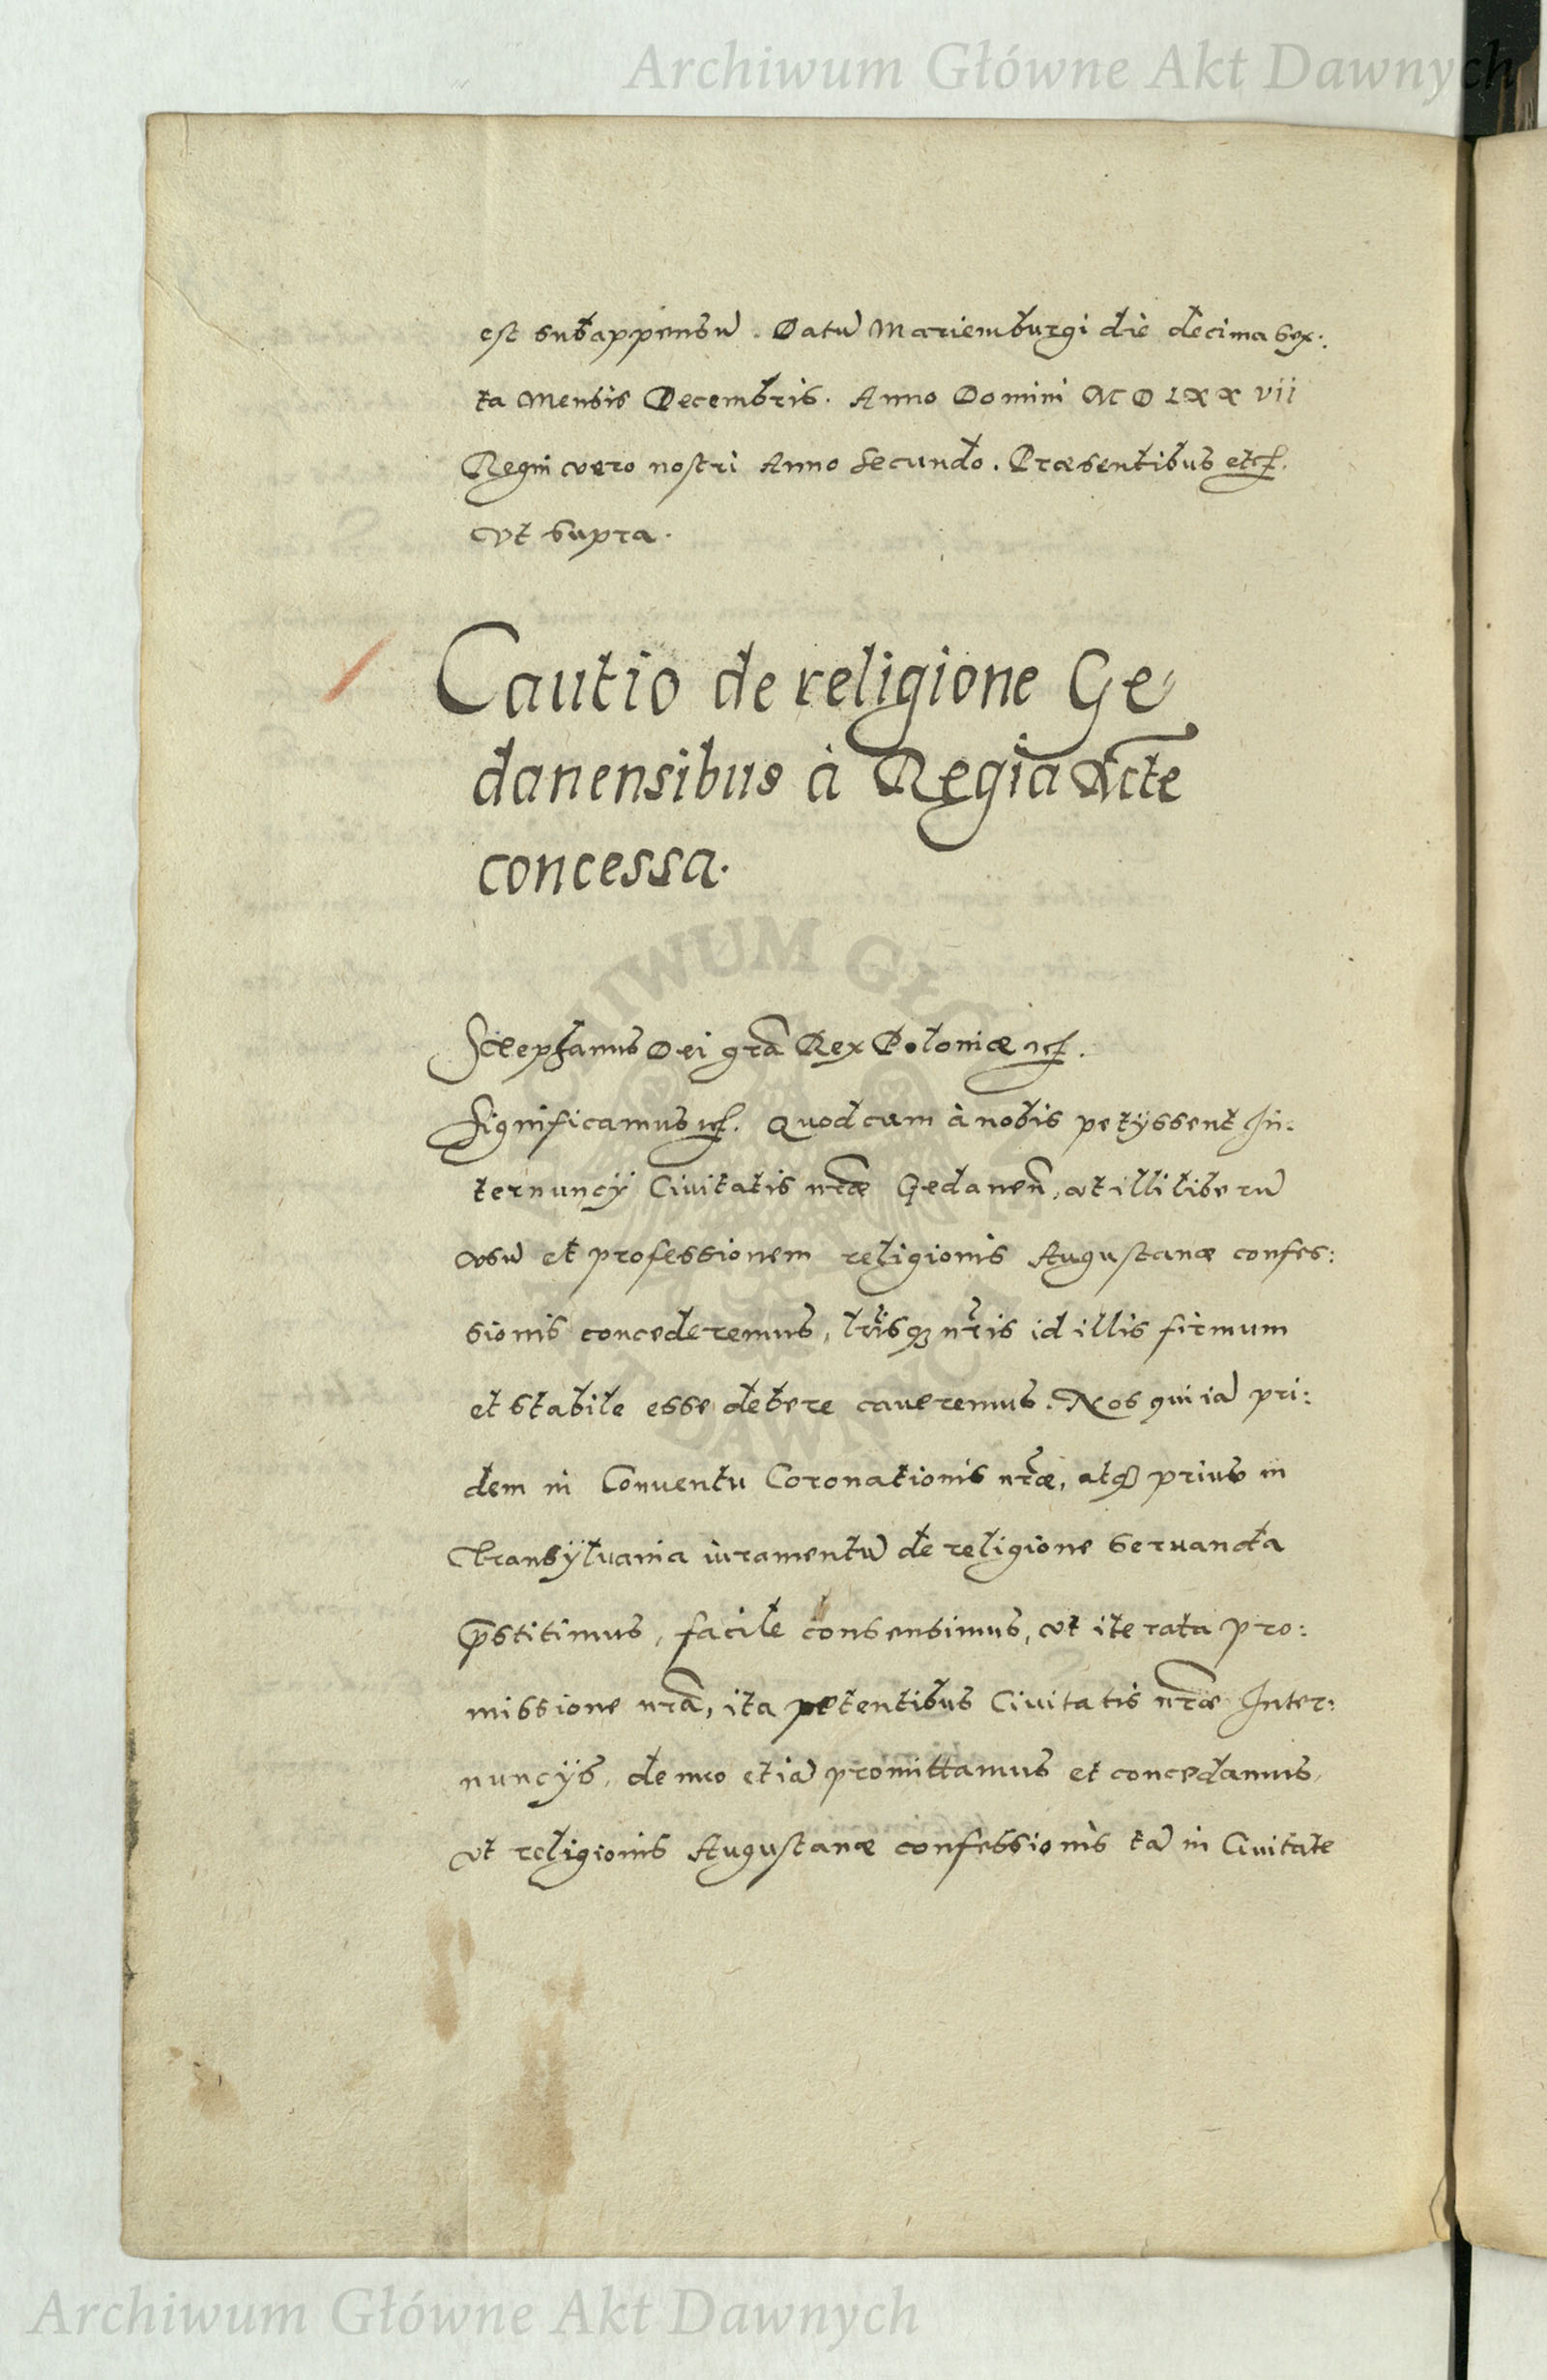 Archiwum Główne Akt Dawnych
est subappensũ. Datũ Mariemburgi die decima sex:
ta Mensis Decembris. Anno Domini MDLXXvii
Regni vero nostri Anno Secundo. Præsentibus etc.
vt supra.
Cautio de religione Ge
danensibus à Regia Mcte
concessa.
Stephanus Dei grã Rex Poloniæ etc.
Significamus etc. Quod cum à nobis petÿssent In:
ternuncÿ Civitatis nr̃æ Gedaneñ, vt illi liberũ
vsũ et professionem religionis Augustanæ confes:
sionis concederemus, lr̃isq₃ nr̃is id illis firmum
et stabile esse debere caueremus. Nos qui iã pri:
dem in Conuentu Coronationis nr̃æ, atq₃ prius in
Transÿluania iuramentũ de religione seruanda
p̃stitimus, facile consensimus, vt iterata pro:
missione nr̃a, ita petentibus Ciuitatis nr̃æ Inter:
nuncÿs, denuo etiã promittamus et concedamus,
vt religionis Augustanæ confessionis tã in Ciuitate
ARCHIWUM GŁÓWNE AKT DAWNYCH
Archiwum Główne Akt Dawnych